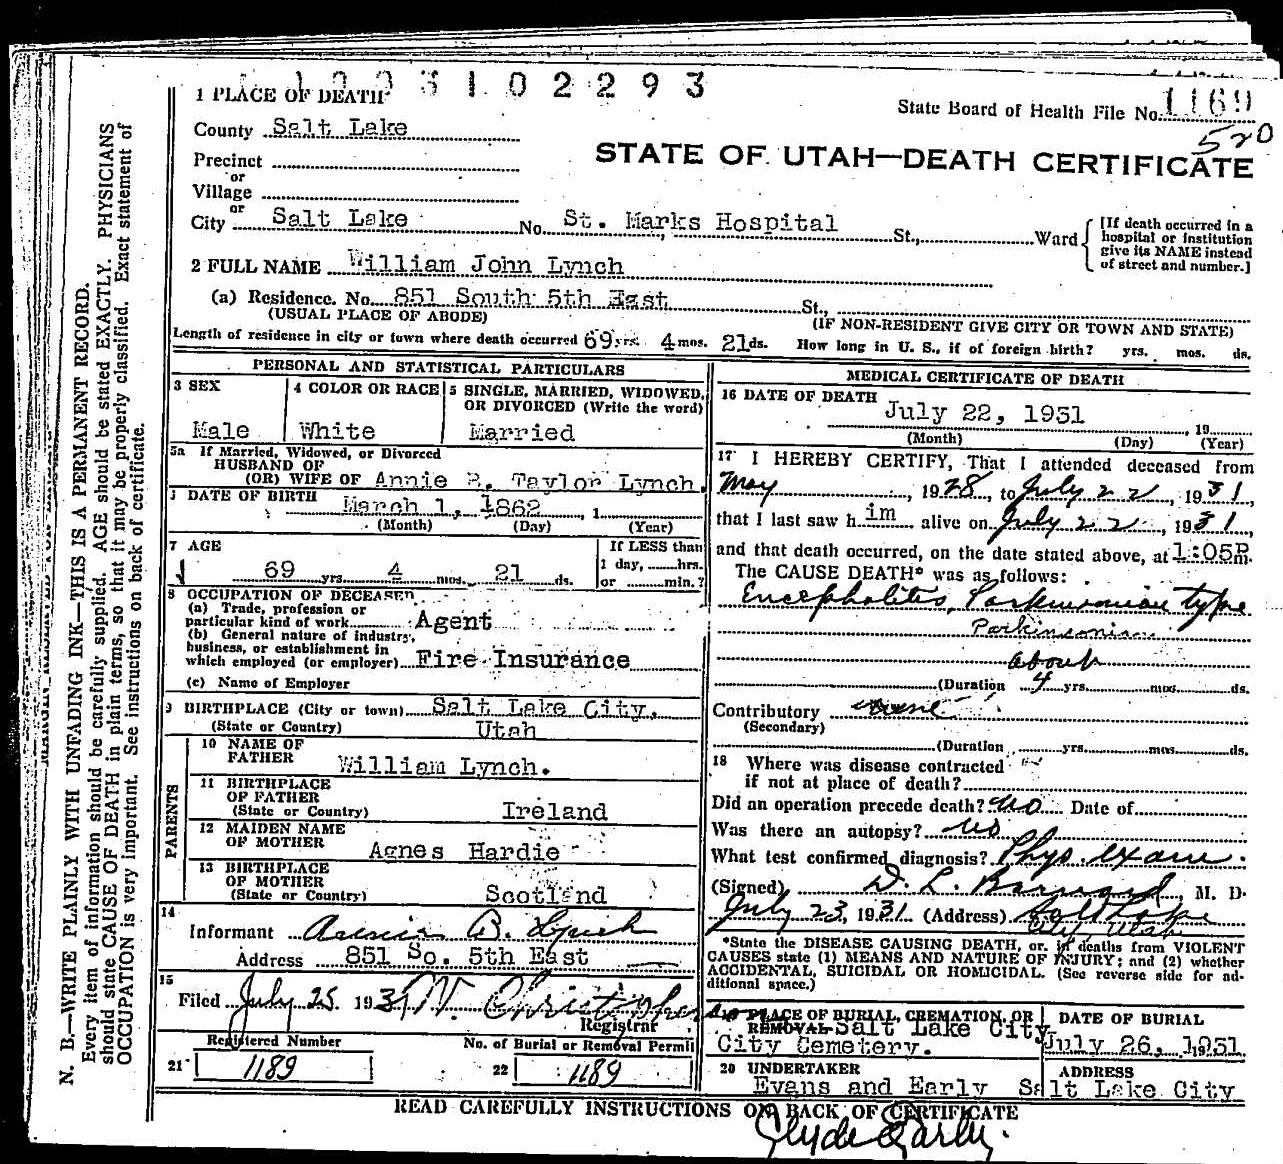 3 1 0 2 2 9 3
1 PLACE OF DEATH
State Board of Health File No. 1169
520
County Salt Lake
STATE OF UTAH—DEATH CERTIFICATE
Precinct
or
Village
or
City Salt Lake No. St. Marks Hospital St., Ward
[If death occurred in a hospital or institution give its NAME instead of street and number.]
2 FULL NAME William John Lynch
(a) Residence. No. 851 South 5th East St.,
(USUAL PLACE OF ABODE) (IF NON-RESIDENT GIVE CITY OR TOWN AND STATE)
Length of residence in city or town where death occurred 69 yrs. 4 mos. 21 ds. How long in U. S., if of foreign birth? yrs. mos. ds.
PERSONAL AND STATISTICAL PARTICULARS
3 SEX
Male
4 COLOR OR RACE
White
5 SINGLE, MARRIED, WIDOWED, OR DIVORCED (Write the word)
Married
5a If Married, Widowed, or Divorced
HUSBAND OF
(OR) WIFE OF Annie B. Taylor Lynch.
DATE OF BIRTH March 1, 1862, 1
(Month) (Day) (Year)
7 AGE
69 yrs. 4 mos. 21 ds.
If LESS than
1 day, hrs.
or min.?
8 OCCUPATION OF DECEASED
(a) Trade, profession or
particular kind of work Agent
(b) General nature of industry,
business, or establishment in
which employed (or employer) Fire Insurance
(c) Name of Employer
9 BIRTHPLACE (City or town) Salt Lake City,
(State or Country) Utah
PARENTS
10 NAME OF
FATHER William Lynch.
11 BIRTHPLACE
OF FATHER
(State or Country) Ireland
12 MAIDEN NAME
OF MOTHER Agnes Hardie
13 BIRTHPLACE
OF MOTHER
(State or Country) Scotland
14
Informant B. Lynch
Address 851 So. 5th East
15
Filed July 25, 1931 W. Christopherson
Registrar
Registered Number
21 1189
No. of Burial or Removal Permit
22 1189
MEDICAL CERTIFICATE OF DEATH
16 DATE OF DEATH
July 22, 1931, 19
(Month) (Day) (Year)
17 I HEREBY CERTIFY, That I attended deceased from
May, 1928, to July 22, 1931,
that I last saw him alive on July 22, 1931,
and that death occurred, on the date stated above, at 1:05P m.
The CAUSE DEATH* was as follows:
Encepholites, Parkinsonian type
Parkinsonian
about
(Duration 4 yrs. mos. ds.
Contributory none
(Secondary)
(Duration yrs. mos. ds.
18 Where was disease contracted
if not at place of death?
Did an operation precede death? No Date of
Was there an autopsy? No
What test confirmed diagnosis? Phys. exam.
(Signed) D. L. Barnard, M. D.
July 23, 1931 (Address) Salt Lake
City, Utah
*State the DISEASE CAUSING DEATH, or, in deaths from VIOLENT
CAUSES state (1) MEANS AND NATURE OF INJURY; and (2) whether
ACCIDENTAL, SUICIDAL OR HOMICIDAL. (See reverse side for ad-
ditional space.)
19 PLACE OF BURIAL, CREMATION, OR
REMOVAL Salt Lake City
City Cemetery.
DATE OF BURIAL
July 26, 1931
20 UNDERTAKER
Evans and Early
ADDRESS
Salt Lake City
READ CAREFULLY INSTRUCTIONS ON BACK OF CERTIFICATE
Clyde Early.
N. B.—WRITE PLAINLY WITH UNFADING INK—THIS IS A PERMANENT RECORD.
Every item of information should be carefully supplied. AGE should be stated EXACTLY. PHYSICIANS
should state CAUSE OF DEATH in plain terms, so that it may be properly classified. Exact statement of
OCCUPATION is very important. See instructions on back of certificate.